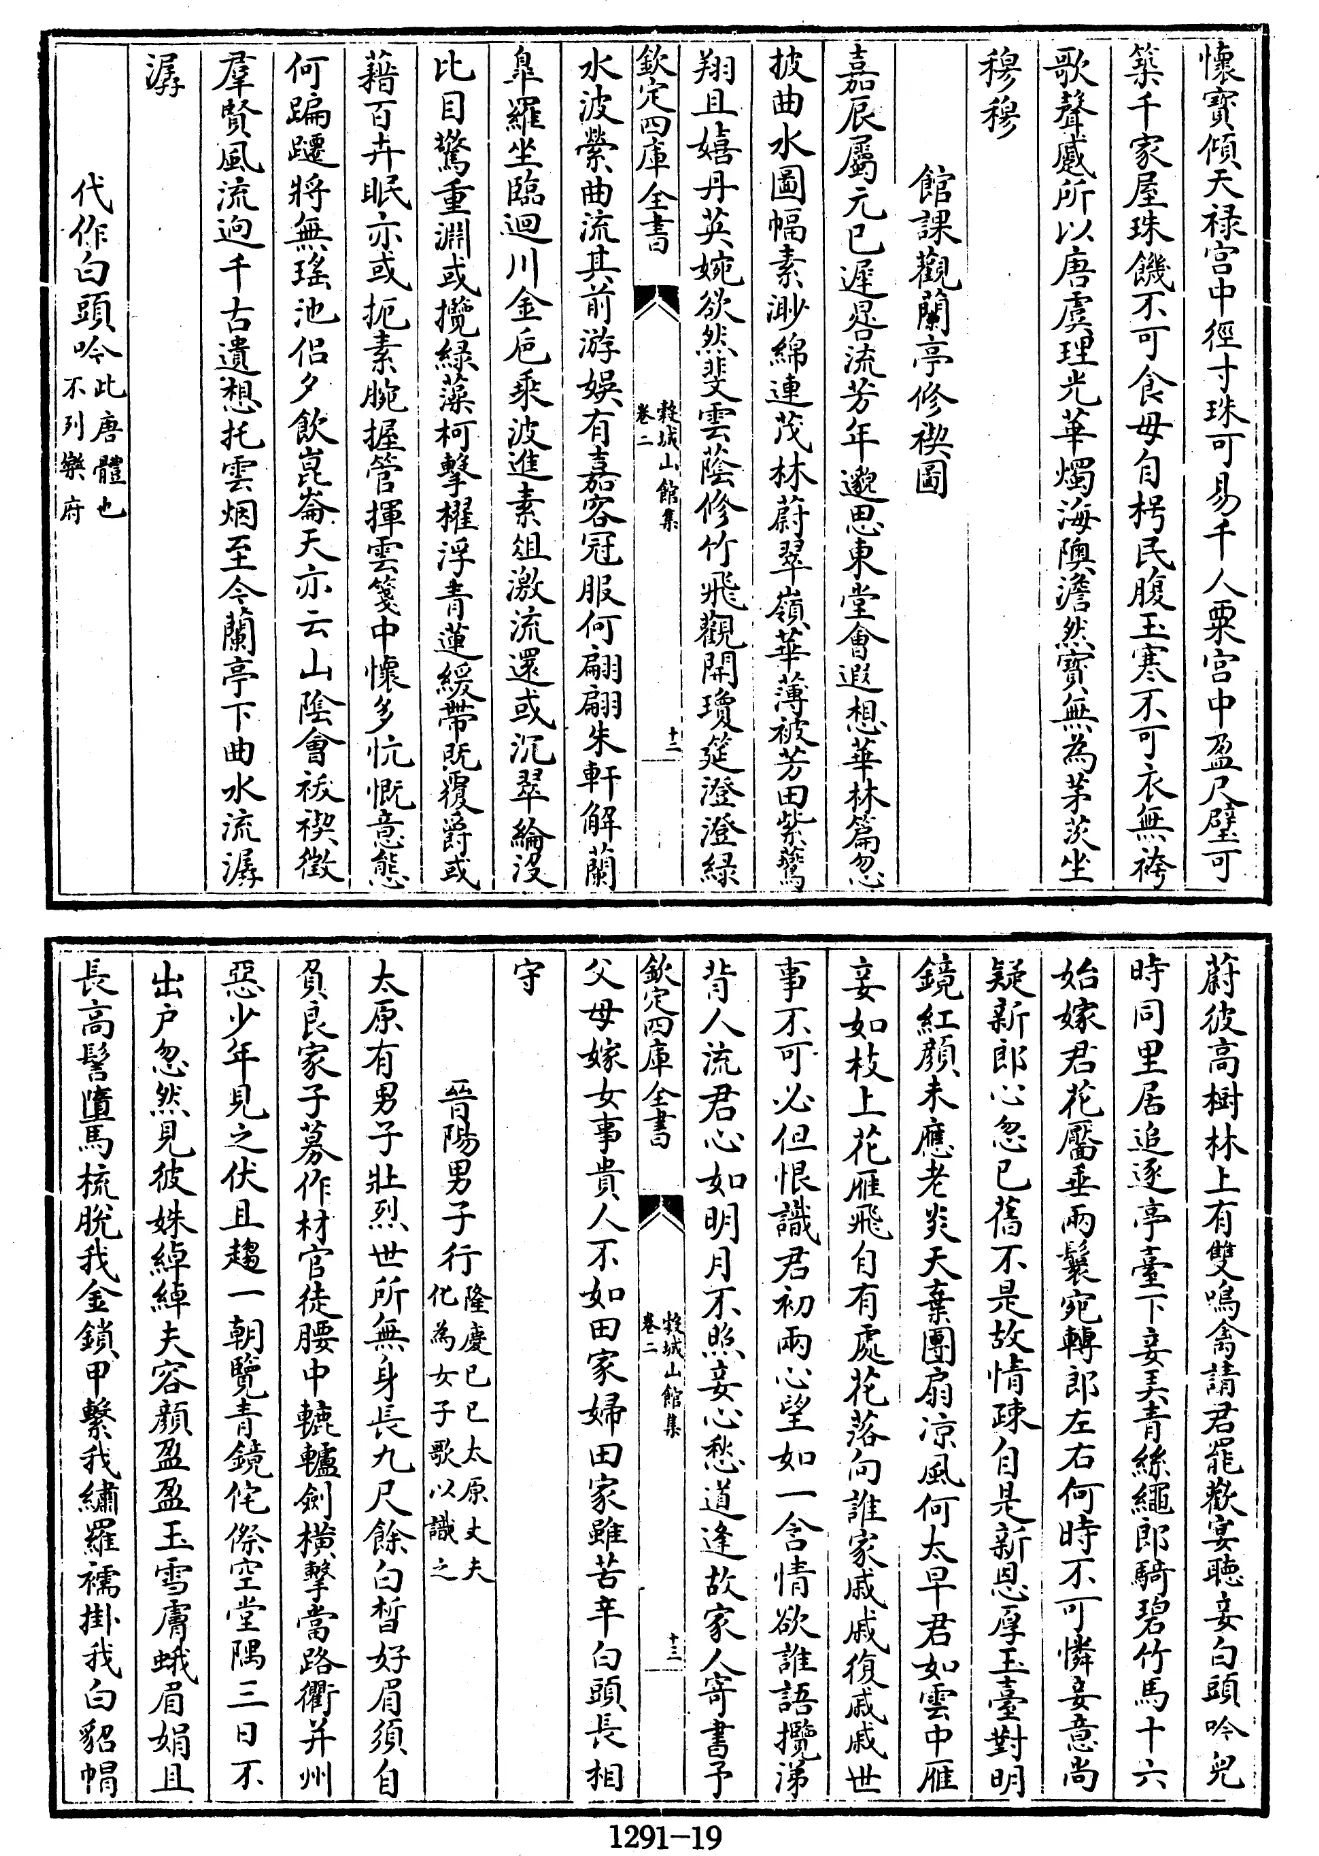 懷寶傾天祿宫中徑寸珠可易千人粟宫中盈尺璧可
築千家屋珠饑不可食毋自枵民腹玉寒不可衣無袴
歌聲蹙所以唐虞理光華燭海隩澹然寳無為茅茨坐
穆穆
館課觀蘭亭修禊圖
嘉辰屬元巳遲晷流芳年邈思東堂會遐想華林篇忽
披曲水圖幅素渺綿連茂林蔚翠嶺華薄被芳田紫鸞
翔且嬉丹英婉欲然斐雲蔭修竹飛觀開瓊筵澄澄緑
欽定四庫全書
穀城山館集
卷二
十二
水波縈曲流其前游娱有嘉客冠服何翩翩朱軒解蘭
臯羅坐臨迴川金巵乘波進素俎激流還或沉翠綸没
比目驚重淵或攬緑藻柯擊櫂浮青蓮緩帶既覆爵或
藉百卉眠亦或扼素腕握管揮雲箋中懷多忼慨意態
何蹁躚將無瑤池侣夕飲崑崙天亦云山陰會祓禊徵
羣賢風流迥千古遺想托雲烟至今蘭亭下曲水流潺
潺
代作白頭吟此唐體也不列樂府
蔚彼高樹林上有雙鳴禽請君罷歡宴聴妾白頭吟兒
時同里居追逐亭臺下妾弄青絲繩郎騎碧竹馬十六
始嫁君花靨垂兩鬟宛轉郎左右何時不可憐妾意尚
疑新郎心忽已舊不是故情疎自是新恩厚玉臺對明
鏡紅顔未應老炎天棄團扇凉風何太早君如雲中雁
妾如枝上花雁飛自有處花落向誰家戚戚復戚戚世
事不可必但恨識君初兩心望如一含情欲誰語攬涕
背人流君心如明月不照妾心愁道逢故家人寄書予
欽定四庫全書
穀城山館集
卷二
十三
父母嫁女事貴人不如田家婦田家雖苦辛白頭長相
守
晉陽男子行隆慶己巳太原丈夫化為女子歌以識之
太原有男子壯烈世所無身長九尺餘白晳好眉須自
負良家子募作材官徒腰中轆轤劍横擊當路衢并州
惡少年見之伏且趨一朝覽青鏡侘傺空堂隅三日不
出户忽然見彼姝綽綽夫容顔盈盈玉雪膚蛾眉娟且
長高髻墮馬梳脱我金鎖甲繫我繡羅襦掛我白貂帽
1291-19